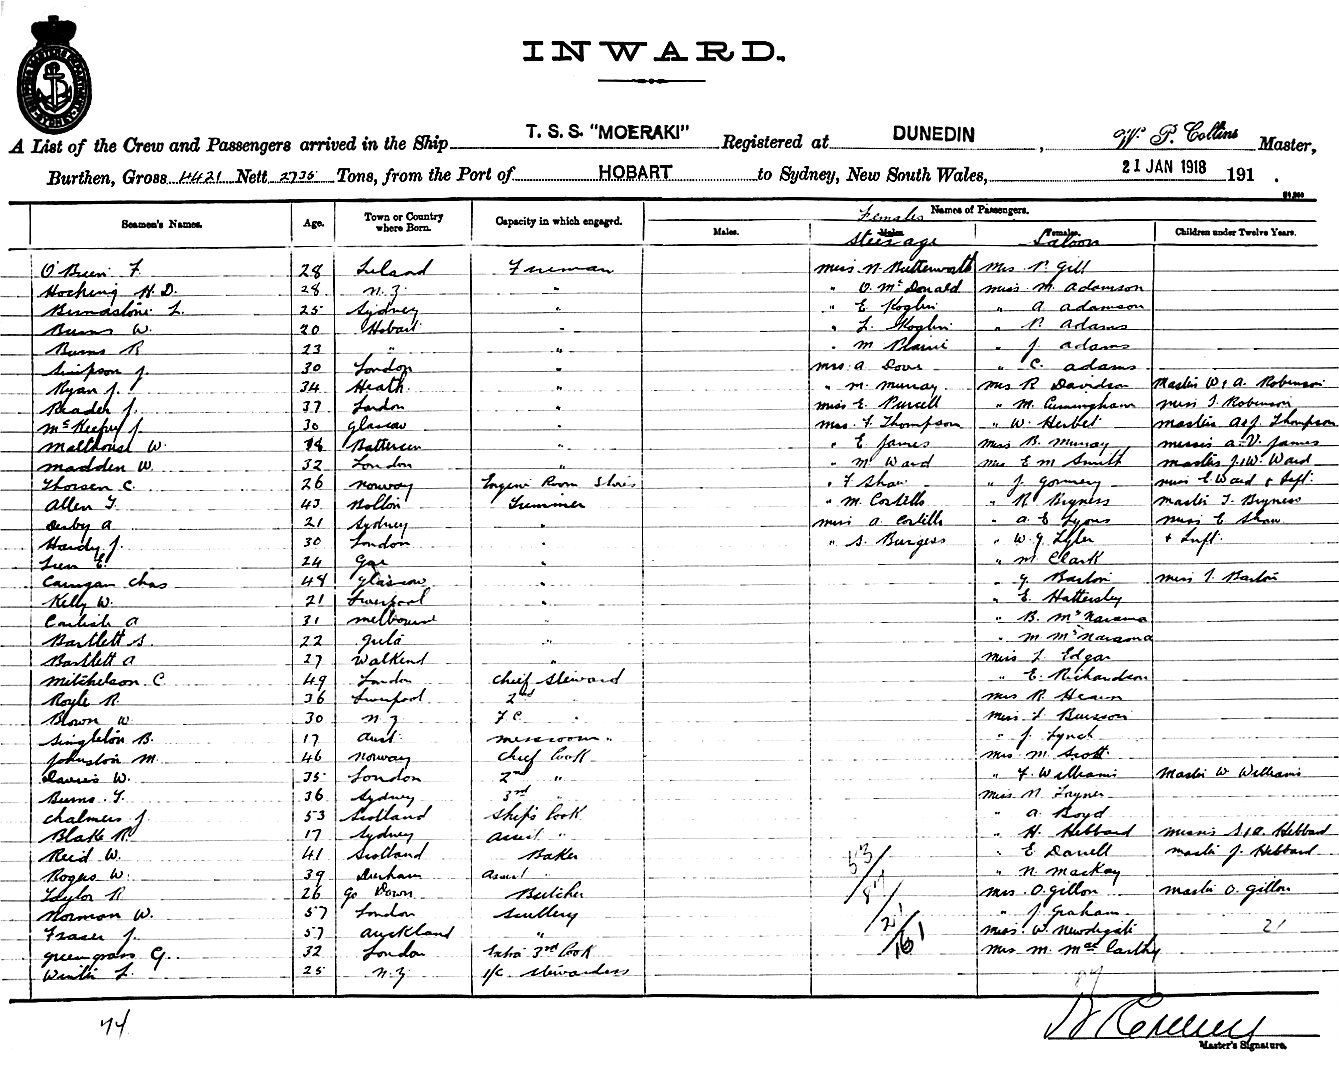 INWARD.
A List of the Crew and Passengers arrived in the Ship T. S. S. "MOERAKI" Registered at DUNEDIN, W. P. Collins Master,
Burthen, Gross 4421 Nett 2735 Tons, from the Port of HOBART to Sydney, New South Wales, 21 JAN 1918 191 .
Seamen's Names. Age. Town or Country where Born. Capacity in which engaged. Names of Passengers.
Males. Females Steerage Females. Saloon Children under Twelve Years.
O'Brien F. 28 Ireland Fireman Miss N. Butterworth Mrs P. Gill
Hocking H. D. 28 N.Z. " " O. McDonald Miss M. Adamson
Blundstone L. 25 Sydney " " E Koglin " A Adamson
Burns W. 20 Hobart " " L. Koglin " P. Adams
Burns R 23 " " " M " J Adams
Simpson J 30 London " Mrs A Dove " C. Adams
Ryan J. 34 Heath " " M. Murray Mrs R Davidson Master W & A. Robinson
Reader J. 37 London " Miss E. Purcell " M. Cunningham Miss I. Robinson
McKeepey J 30 Glasgow " Mrs F Thompson " W. Herbet Master A & J Thompson
Malthouse W. 18 Battersea " " E James Miss B. Murray Misses A. V. James
Madden W. 32 London " " M Ward Mrs E M Smith Master J & W. Ward
Thorsen C. 26 Norway Engine Room Stores " F Shaw " J Miss E Ward & Inft.
Allen T. 43 Bolton Trimmer " M. Costello " R Bryness Master T. Bryness
Derby A 21 Sydney " Miss A Costello " A. E Lyons Miss E Shaw
Hardy J. 30 London " " S. Burgess " W. G Tyler & Inft.
E. 24 " " M. Clark
Carrigan Chas 48 Glasgow " " G Barton Miss I. Barton
Kelly W. 21 Liverpool " " E. Hattersley
Carlish A 31 Melbourne " " B. McNamara
Bartlett S. 22 " " M McNamara
Bartlett A 27 Walkend " Miss L Edgar
Mitchelson C 49 London Chief Steward " E. Richardson
Royle R. 36 Liverpool 2nd " Mrs R. Hearn
Brown W 30 N.Z F C. " Miss F Buisson
Singleton B. 17 Aust. Messroom " " J. Lynch
Johnston M. 46 Norway Chief Cook Mrs M. Scott
Davies W. 35 London 2nd " " F. Williams Master W Williams
Burns T. 36 Sydney 3rd " Miss N.
Chalmers J 53 Scotland Ship's Cook " A Boyd
Blake R. 17 Sydney Assist " " H. Hebbard Misses S & A. Hebbard
Reid W. 41 Scotland Baker " E Darrell Master J. Hebbard
Rogers W. 39 Durham Assist " " N. Mackay
Taylor R 26 Co Down Butcher Mrs O. Gillon Master O. Gillon
Norman W. 57 London Scullery " J Graham
Fraser J. 57 Auckland " Miss W. Newdigate 21
Greengrass G. 32 London Extra 3rd Cook Mrs M. MacCarthy
Winter L. 25 N.Z. 1/C. Stewardess
53
87
21
161
74
87
Master's Signature.